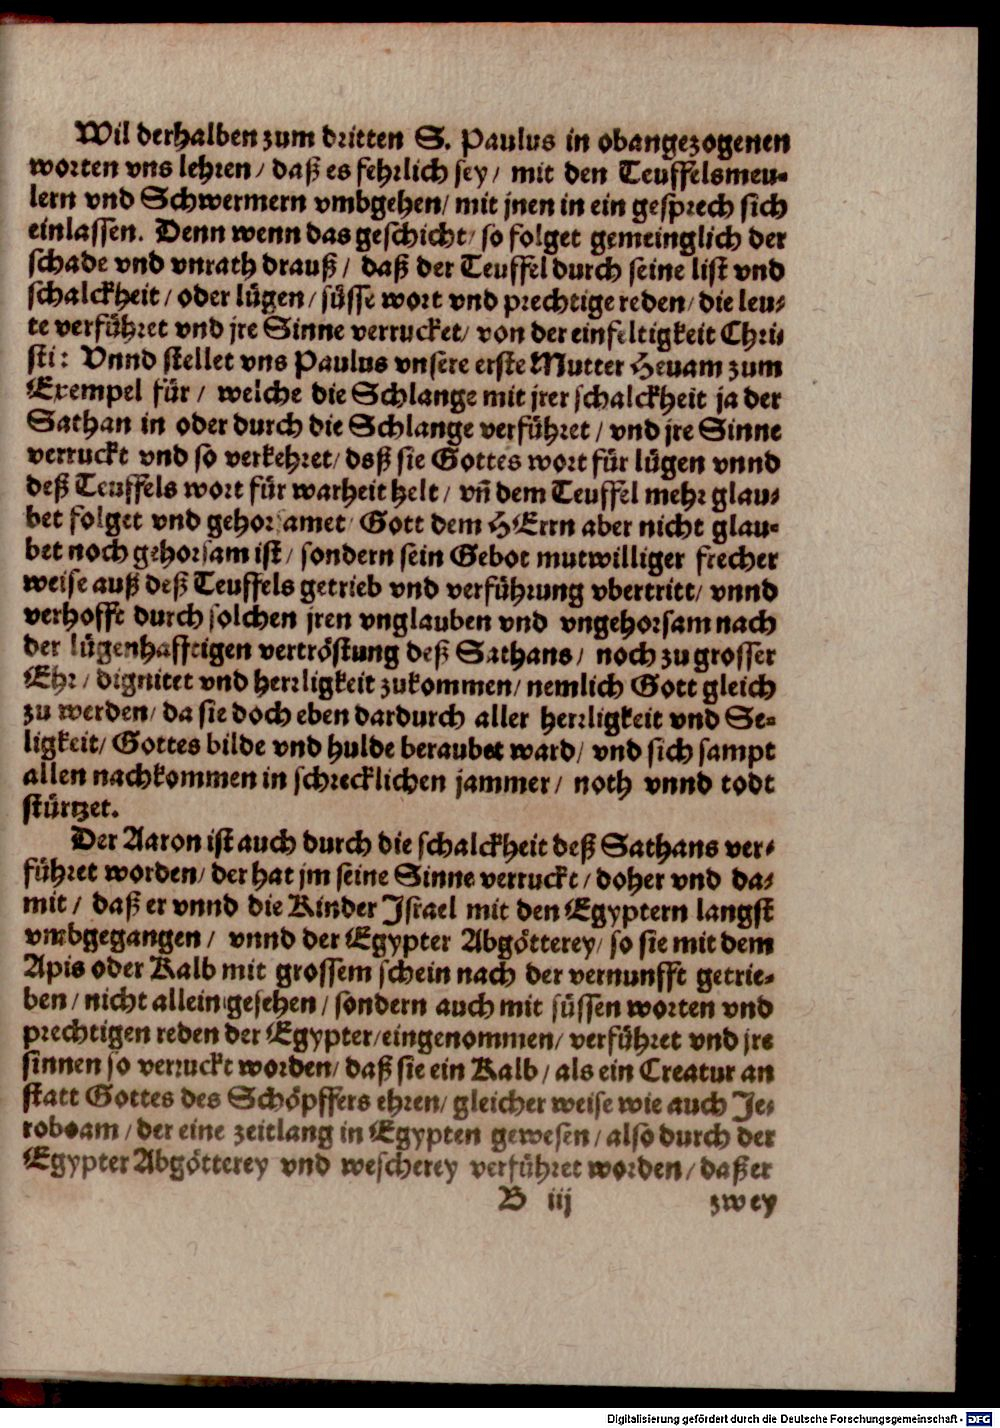 Wil derhalben zum dritten S. Paulus in obangezogenen
worten vns lehren / daß es fehrlich sey / mit den Teuffelsmeu-
lern vnd Schwermern vmbgehen / mit jnen in ein gesprech sich
einlassen. Denn wenn das geschicht / so folget gemeinglich der
schade vnd vnrath drauß / daß der Teuffel durch seine list vnd
schalckheit / oder lügen / süsse wort vnd prechtige reden / die leu-
te verführet vnd jre Sinne verrucket / von der einfeltigkeit Chri-
sti: Vnnd stellet vns Paulus vnsere erste Mutter Heuam zum
Exempel für / welche die Schlange mit jrer schalckheit ja der
Sathan in oder durch die Schlange verführet / vnd jre Sinne
verruckt vnd so verkehret / dsß sie Gottes wort für lügen vnnd
deß Teuffels wort für warheit helt / vñ dem Teuffel mehr glau-
bet folget vnd gehorsamet / Gott dem HErrn aber nicht glau-
bet noch gehorsam ist / sondern sein Gebot mutwilliger frecher
weise auß deß Teuffels getrieb vnd verführung vbertritt / vnnd
verhofft durch solchen jren vnglauben vnd vngehorsam nach
der lügenhafftigen vertröstung deß Sathans / noch zu grosser
Ehr / dignitet vnd herrligkeit zukommen / nemlich Gott gleich
zu werden / da sie doch eben dardurch aller herrligkeit vnd Se-
ligkeit / Gottes bilde vnd hulde beraubet ward / vnd sich sampt
allen nachkommen in schrecklichen jammer / noth vnnd todt
stürtzet.
Der Aaron ist auch durch die schalckheit deß Sathans ver-
führet worden / der hat jm seine Sinne verruckt / doher vnd da-
mit / daß er vnnd die Kinder Israel mit den Egyptern langst
vmbgegangen / vnnd der Egypter Abgötterey / so sie mit dem
Apis oder Kalb mit grossem schein nach der vernunfft getrie-
ben / nicht allein gesehen / sondern auch mit süssen worten vnd
prechtigen reden der Egypter / eingenommen / verführet vnd jre
sinnen so verruckt worden / daß sie ein Kalb / als ein Creatur an
statt Gottes des Schöpffers ehren / gleicher weise wie auch Je-
roboam / der eine zeitlang in Egypten gewesen / also durch der
Egypter Abgötterey vnd wescherey verführet worden / daß er
B iij zwey
Digitalisierung gefördert durch die Deutsche Forschungsgemeinschaft - DFG